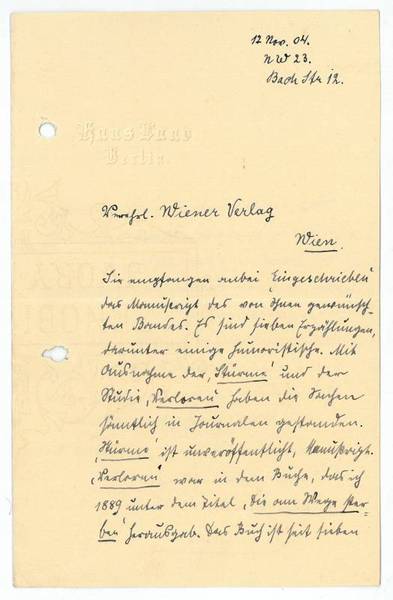 12 Nov. 04.
NW 23.
Bach Str 12.
Hans Land
Berlin.
Verehrl. Wiener Verlag
Wien.
Sie empfangen anbei "Eingeschrieben"
das Manuscript des von Ihnen gewünsch-
ten Bandes. Es sind sieben Erzählungen,
darunter einige humoristische. Mit
Ausnahme der "Stürme" und der
Studie "Verloren" haben die Sachen
sämtlich in Journalen gestanden.
"Stürme" ist unveröffentlicht, Manuskript.
"Verloren" war in dem Buche, das ich
1889 unter dem Titel "Die am Wege ster-
ben" herausgab. Das Buch ist seit sieben